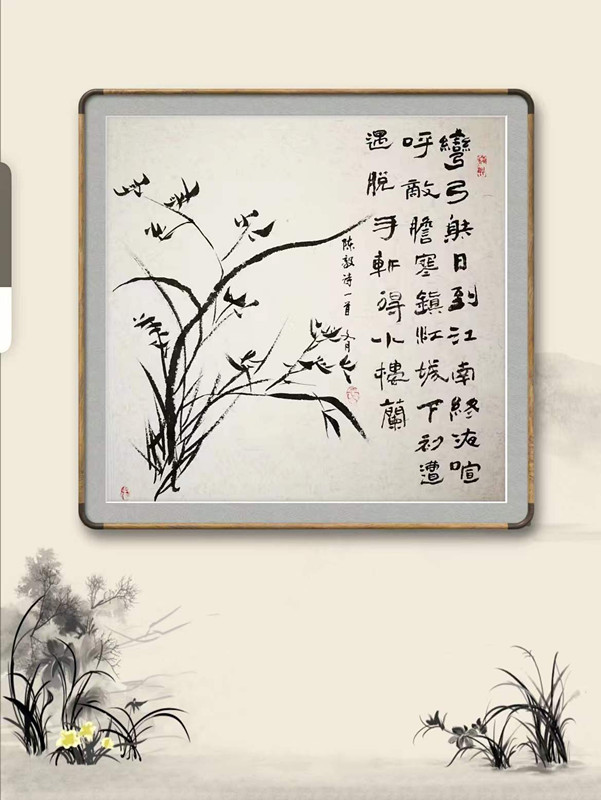 彎弓射日到江南終夜喧
呼敵膽寒鎮江城下初遭
遇脱手斬得小樓蘭
陳毅詩一首